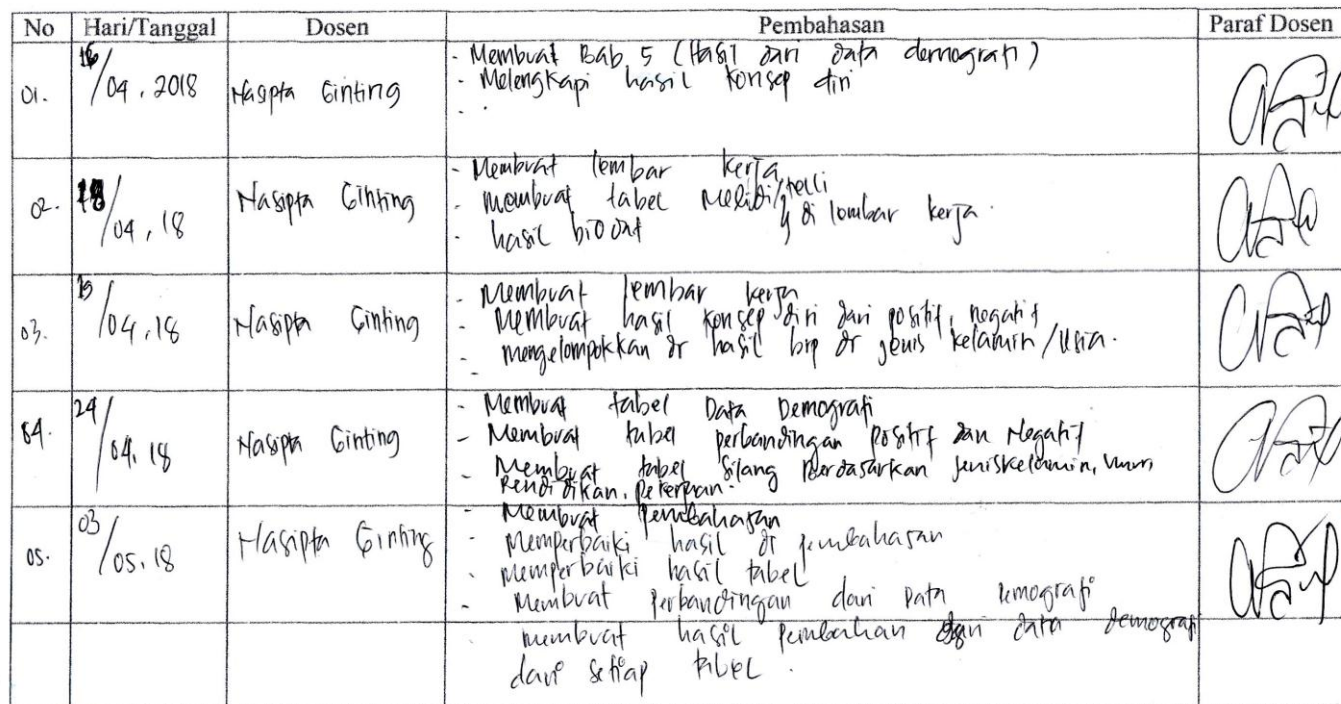 No Hari/Tanggal Dosen Pembahasan Paraf Dosen
01. 16/04.2018 Nasipta Ginting
- Membuat Bab 5 (Hasil dari data demografi)
- Melengkapi hasil konsep diri
02. 18/04,18 Nasipta Ginting
- Membuat lembar kerja
- membuat tabel
di lembar kerja.
- hasil
03. 19/04.18 Nasipta Ginting
- Membuat lembar kerja
- Membuat hasil konsep diri dari positif, negatif
- mengelompokkan dr hasil dr jenis kelamin/Usia.
04. 24/04.18 Nasipta Ginting
- Membuat tabel Data Demografi
- Membuat tabel perbandingan Positif dan Negatif
- Membuat tabel silang Berdasarkan Jeniskelamin, Umur,
Pendidikan, Pekerjaan.
05. 03/05.18 Nasipta Ginting
- Membuat Pembahasan
- Memperbaiki hasil di pembahasan
- Memperbaiki hasil tabel
- Membuat Perbandingan dari Data Demografi
- membuat hasil dari data demografi
dari setiap tabel.